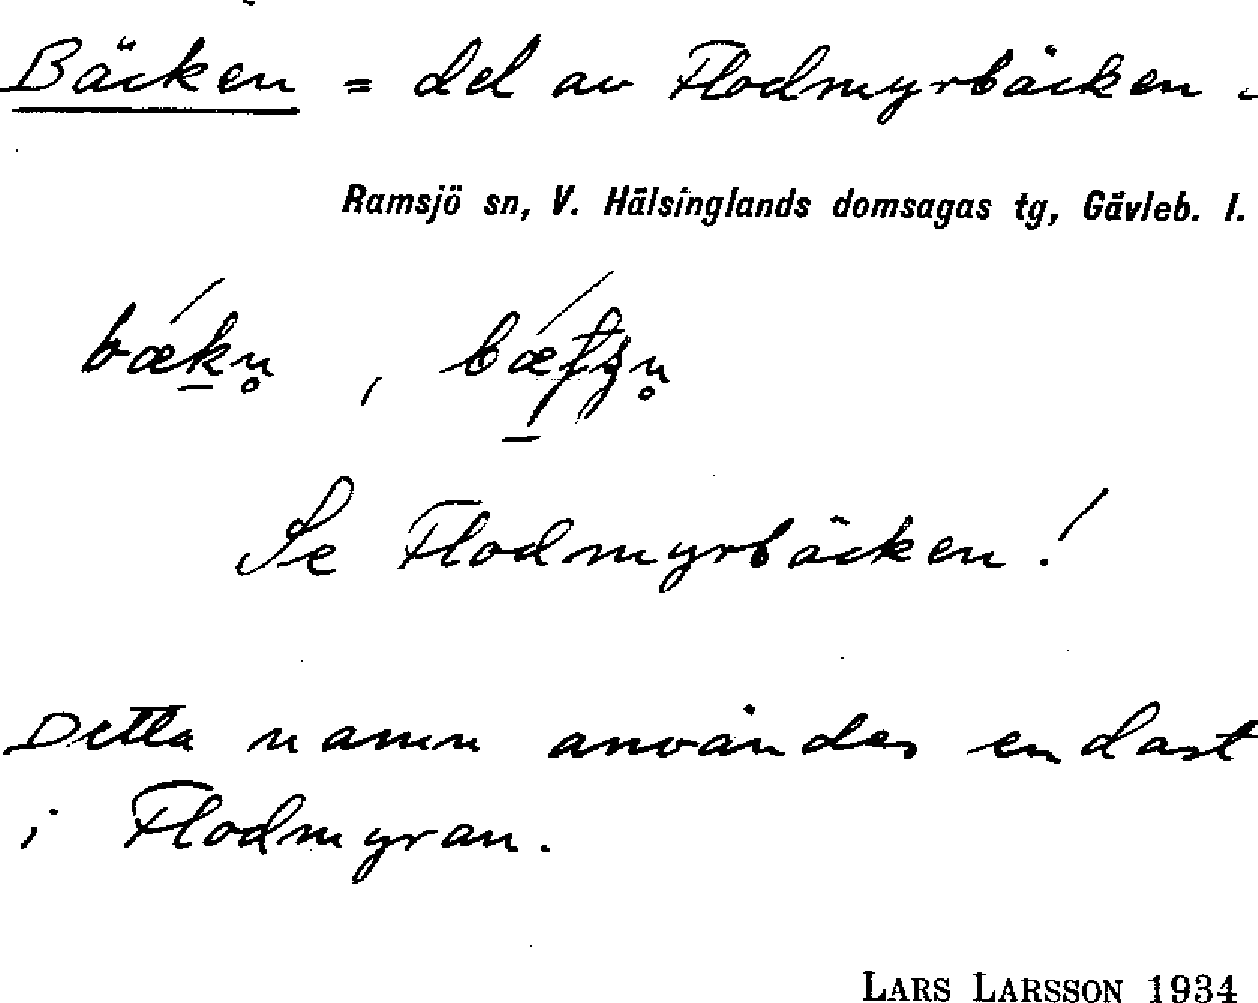 Bäcken = del av Flodmyrbäcken -
Ramsjö sn, V. Hälsinglands domsagas tg, Gävleb. l.
Se Flodmyrbäcken!
Detta namn användes endast
i Flodmyran.
LARS LARSSON 1934